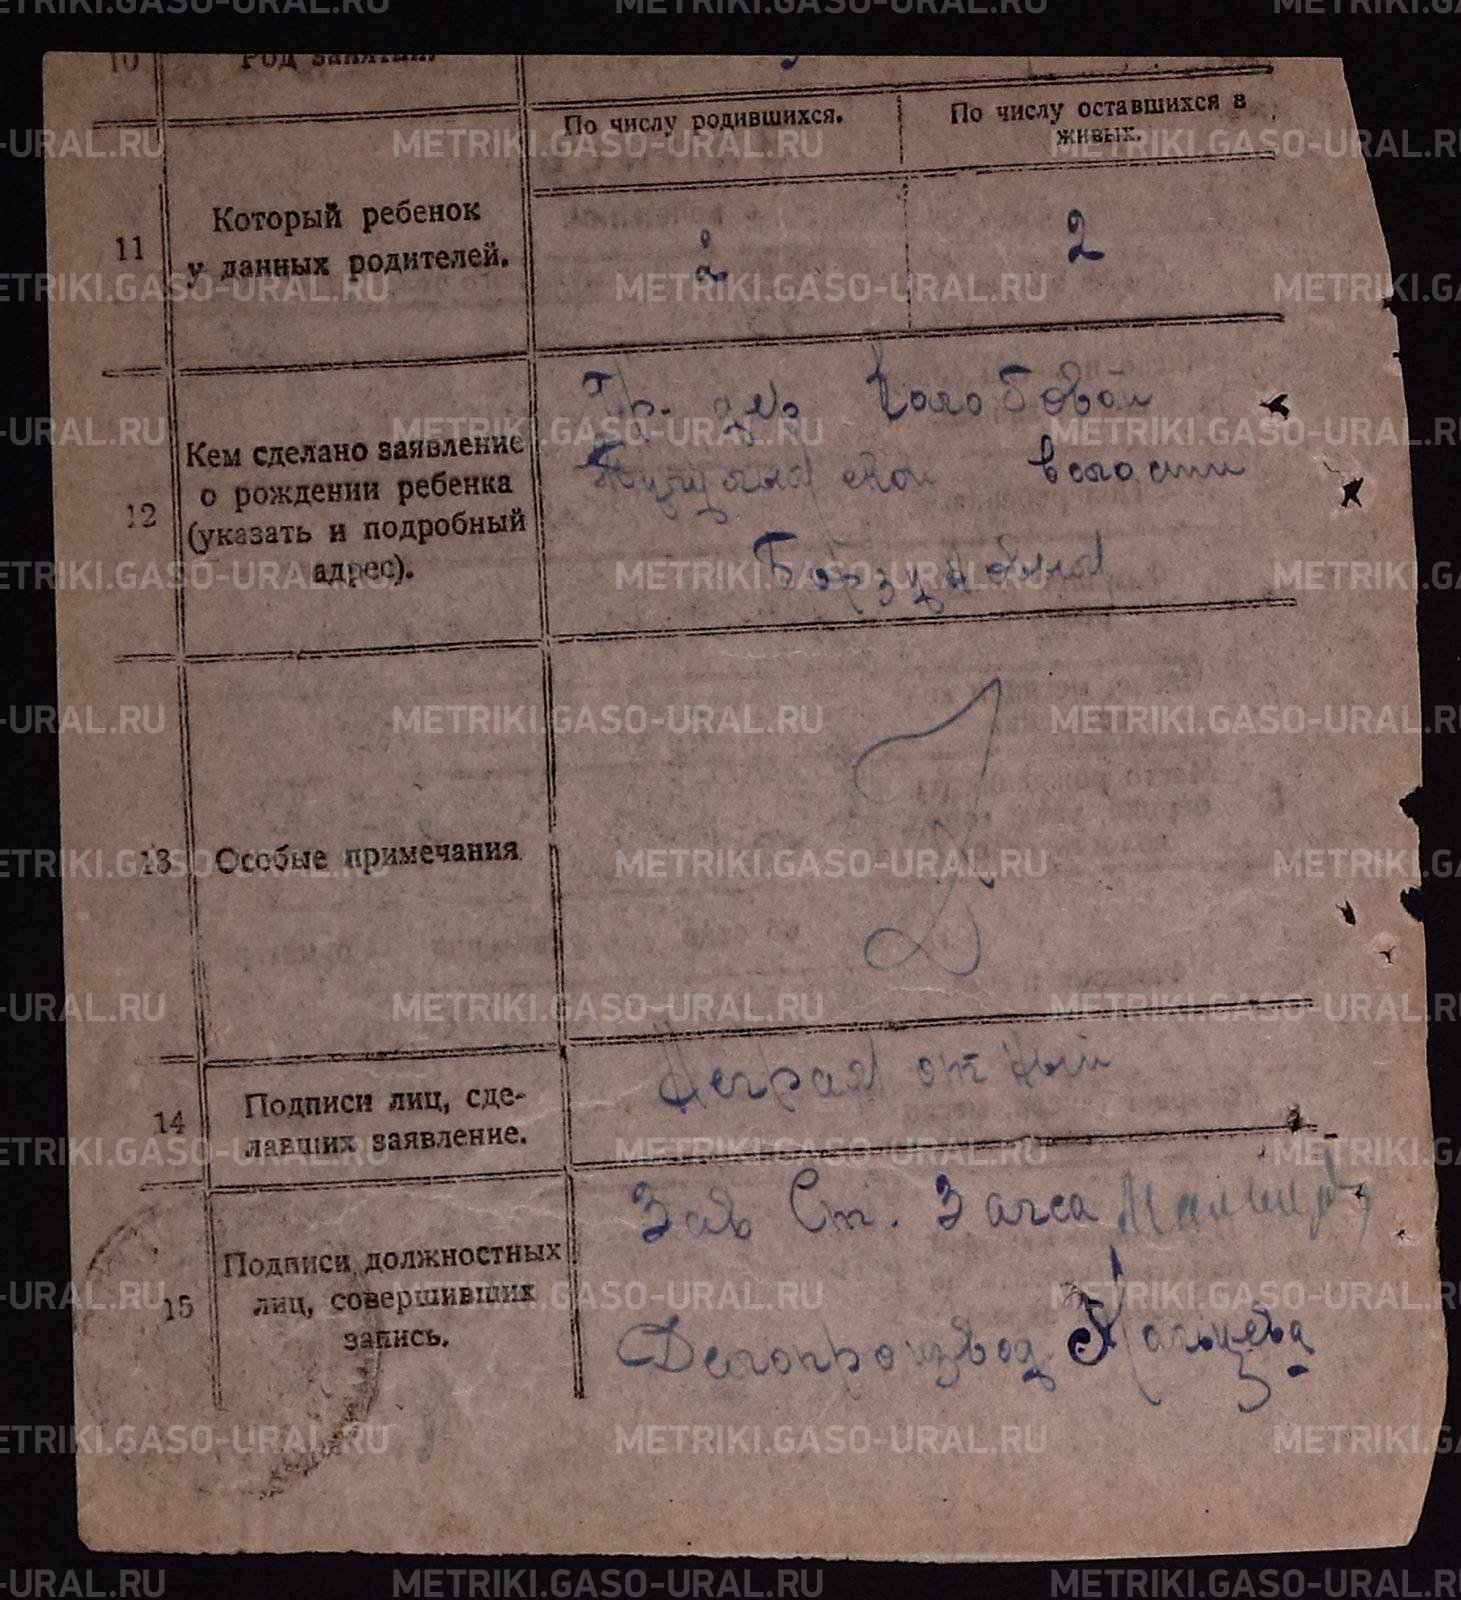 10 Род занятий.
По числу родившихся.
По числу оставшихся в
живых.
11
Который ребенок
у данных родителей.
2
2
12
Кем сделано заявление
о рождении ребенка
(указать и подробный
адрес).
Гр. дер Колобовой
волости
13
Особые примечания
14
Подписи лиц, сде-
лавших заявление.
Неграмотный
15
Подписи должностных
лиц, совершивших
запись.
Зав Ст. Загса
Делопроизвод Мальцева
METRIKI.GASO-URAL.RU